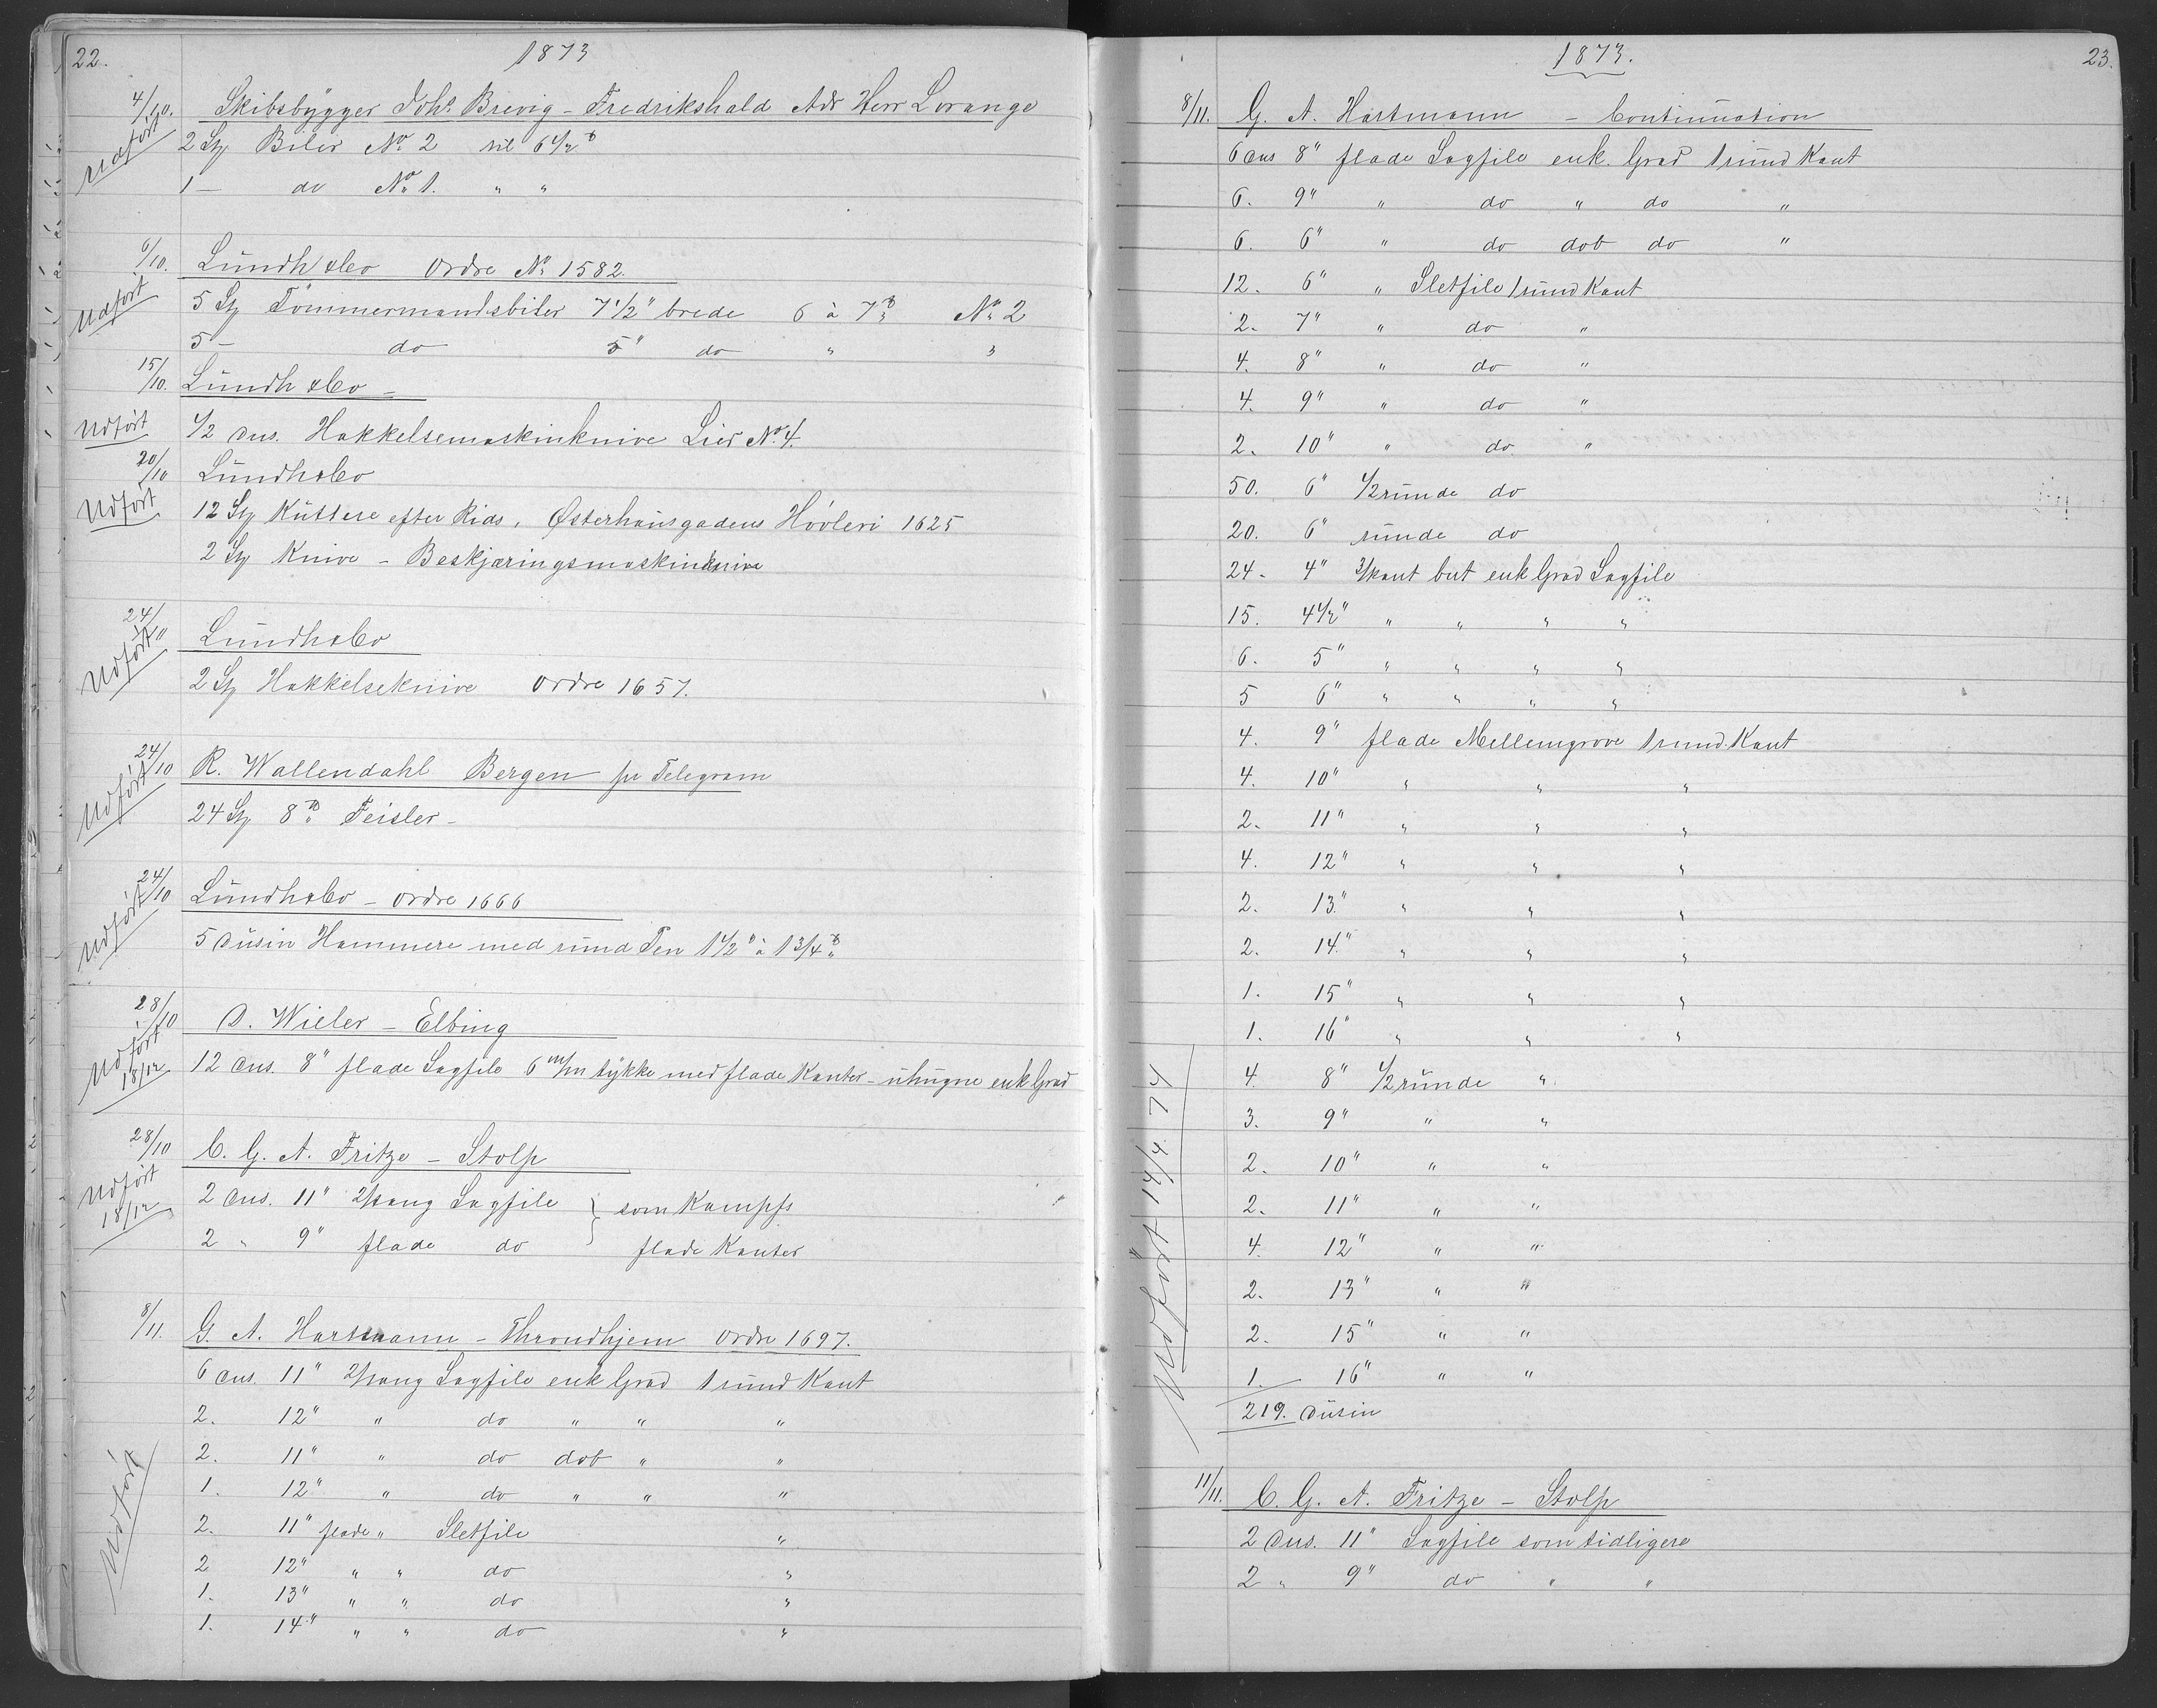 22.
1873
4/10. Skibsbygger Johs. Brevig - Fredrikshald Adr Herr Lorange
Udført
2 St Biler No 2 til 6 1/2 ℔
1 — do No 1. " "
6/10. Lundh & Co Ordre No 1582.
Udført
5 St Tømmermandsbiler 7 1/2" brede 6 à 7 ℔ No 2
5 — do 5" do " "
15/10. Lundh & Co -
Udført
1/2 Dus. Hakkelsemaskinknive Lier No 4.
20/10 Lundh & Co
Udført
12 St Kuttere efter Rids, Østerhausgadens Høvleri 1625
2 St Knive - Beskjæringsmaskinknive
24/10 Lundh & Co
Udført
2 St Hakkelseknive Ordre 1657.
24/10 R. Wallendahl Bergen pr Telegram
Udført
24 St 8 ℔ Feisler -
24/10 Lundh & Co - Ordre 1666
Udført
5 Dusin Hammere med rund Pen 1 1/2 " à 1 3/4 ℔
28/10 D. Wieler - Elbing
Udført 18/12
12 Dus. 8" flade Sagfile 6 m/m tykke med flade Kanter - uhugne enk Grad
28/10 C. G. A. Fritze - Stolp
Udført 18/12
2 Dus. 11" 2/kang Sagfile } som Kampfs
2 " 9" flade do } flade Kanter
8/11. G. A. Hartmann - Throndhjem Ordre 1697.
Udført
6 Dus. 11" 2/kang Sagfile enk Grad 1 rund Kant
2. 12" " do " " "
2. 11" " do dob " "
1. 12" " do " " "
2. 11" flade " Sletfile "
2 12" " " do "
1. 13" " " do "
1. 14" " " do "
1873.
23.
8/11. G. A. Hartmann - Continuation
6 Dus 8" flade Sagfile enk. Grad 1 rund Kant
6. 9" " do " do "
6. 6" " do dob do "
12. 6" " Sletfile 1 rund Kant
2. 7" " do "
4. 8" " do "
4. 9" " do "
2. 10" " do "
50. 6" 1/2 runde do
20. 6" runde do
24. 4" 3/kant but enk Grad Sagfile
15. 4 1/2" " " " "
6. 5" " " " "
5 6" " " " "
4. 9" flade Mellemgrove 1 rund Kant
4. 10" " " "
2. 11" " " "
4. 12" " " "
2. 13." " " "
2. 14." " " "
1. 15" " " "
1. 16" " " "
4. 8" 1/2 runde "
3. 9" " "
2. 10" " "
2. 11" " "
4. 12" " "
2. 13" " "
2. 15" " "
1. 16" " "
219. Dusin
Udført 14/4. 74
11/11. C. G. A. Fritze - Stolp
2 Dus. 11" Sagfile som tidligere
2 " 9" do " "